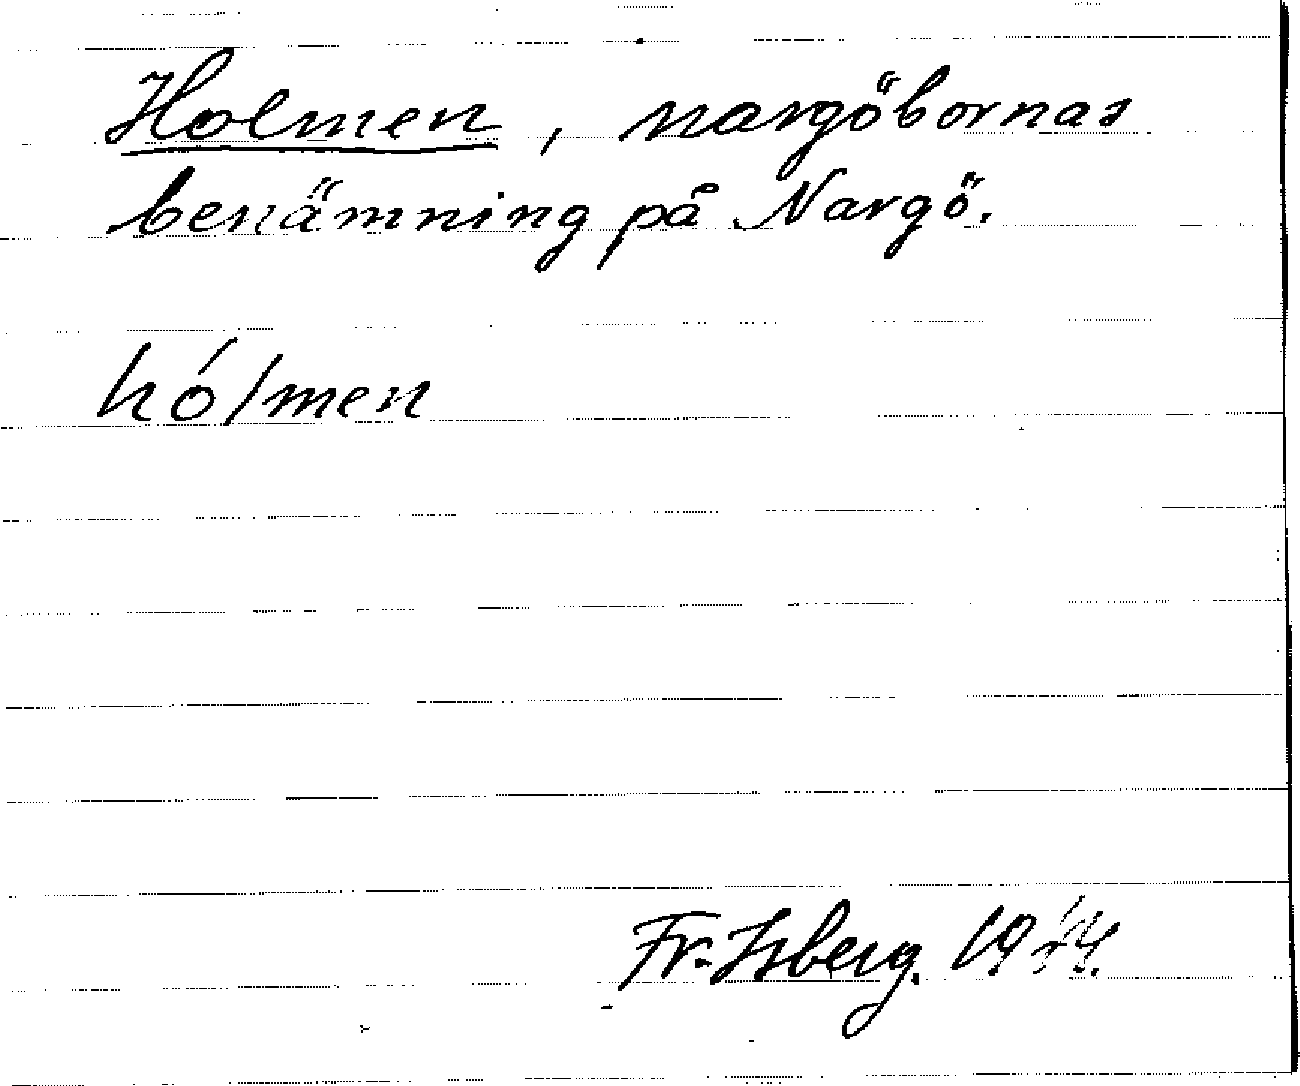 Holmen, nargöbornas
benämning på Nargö.
hólmen
Fr. Isberg.